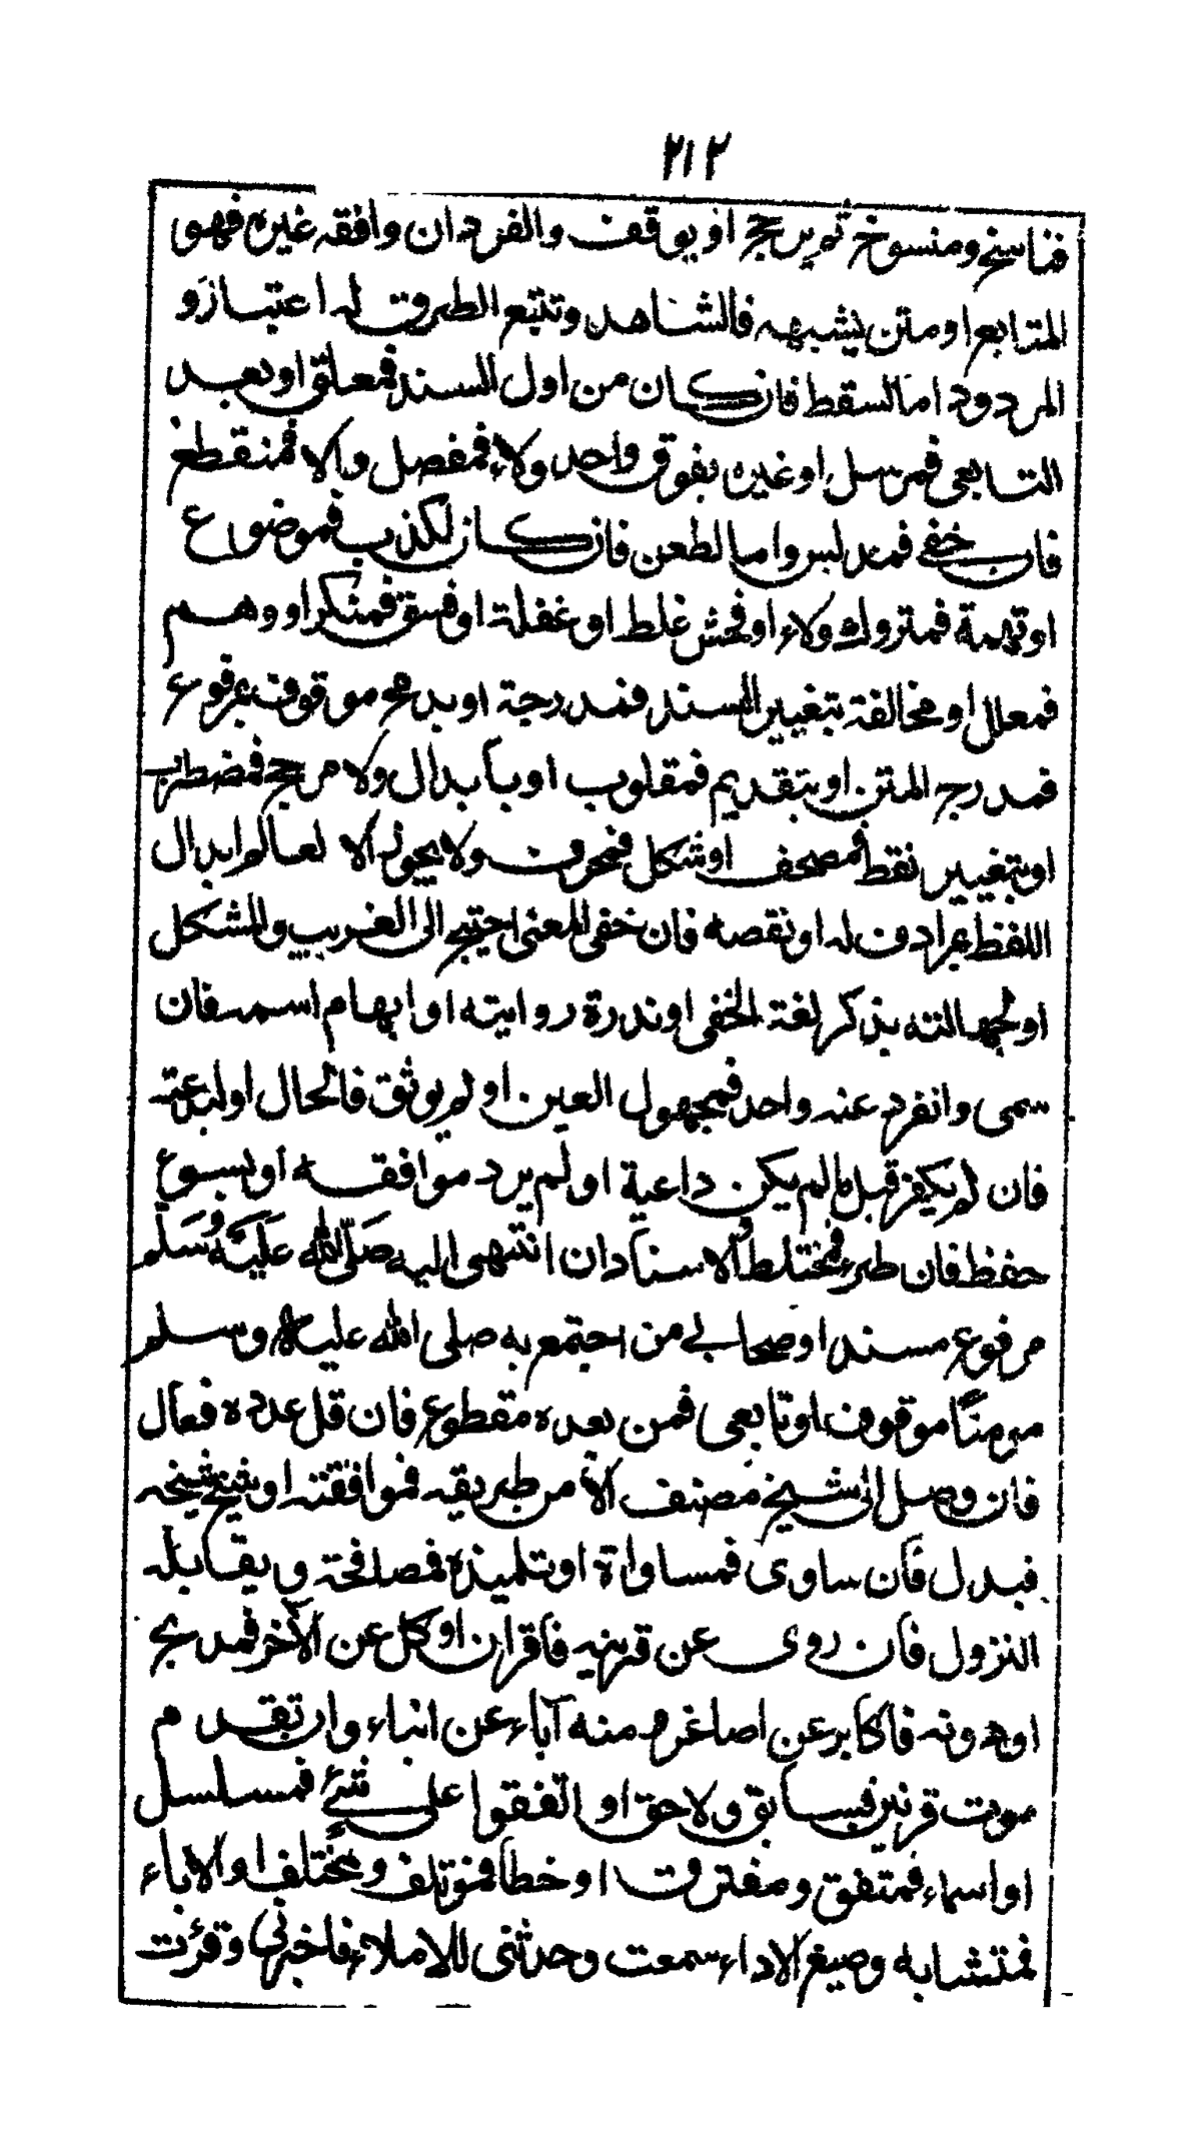 ٢١٢
فناسخ ومنسوخ ثم يرجح او يوقف والفرد ان وافقه غيره فهو
المتابع او متن يشبهه فالشاهد وتتبع الطرق له اعتبار و
المردود اما لسقط فان كان من اول السند فمعلق او بعد
التابعي فمرسل او غيره بفوق واحد ولاء فمفصل والا فمنقطع
فان خفي فمدلس واما لطعن فان كان لكذب فموضوع
او تهمة فمتروك ولاء او فحش غلط او غفلة او فسق فمنكر او وهم
فمعلل او مخالفة بتغيير السند فمدرجة او بدمج موقوف بمرفوع
فمدرج المتن او بتقديم فمقلوب او بابدال ولا مرجح فمضطرب
او بتغيير نقط فمصحف او شكل فمحرف ولا يجوز الا لعالم ابدال
اللفظ بمرادف له او نقصه فان خفي المعنى احتيج الى الغريب والمشكل
او لجهالته بذكر لغته الخفي او ندرة روايته او ابهام اسمه فان
سمى وانفرد عنه واحد فمجهول العين او لم يوثق فالحال او لبدعته
فان لم يكفر قبل مالم يكن داعية او لم يرد موافقه او لسوء
حفظ فان طرء فمختلط والاسناد ان انتهى اليه صلى الله عليه وسلم
مرفوع مسند او صحابي من اجتمع به صلى الله عليه وسلم
مومنا موقوف او تابعي فمن بعده مقطوع فان قل عدده فعال
فان وصل الى شيخ مصنف لا من طريقه فموافقته او شيخ شيخه
فبدل فان ساوى فمساواة او تلميذه فمصافحة ويقابله
النزول فان روى عن قرينه فاقران او كل عن الآخر فمدبج
او دونه فاكابر عن اصاغر ومنه آباء عن ابناء وان تقدم
موت قرينين فسابق ولاحق او اتفقوا على شئ فمسلسل
او اسماء فمتفق ومفترق او خطا فمؤتلف ومختلف او الاباء
فمتشابه وصيغ الاداء سمعت وحدثنى للاملاء فاخبرني وقرئت